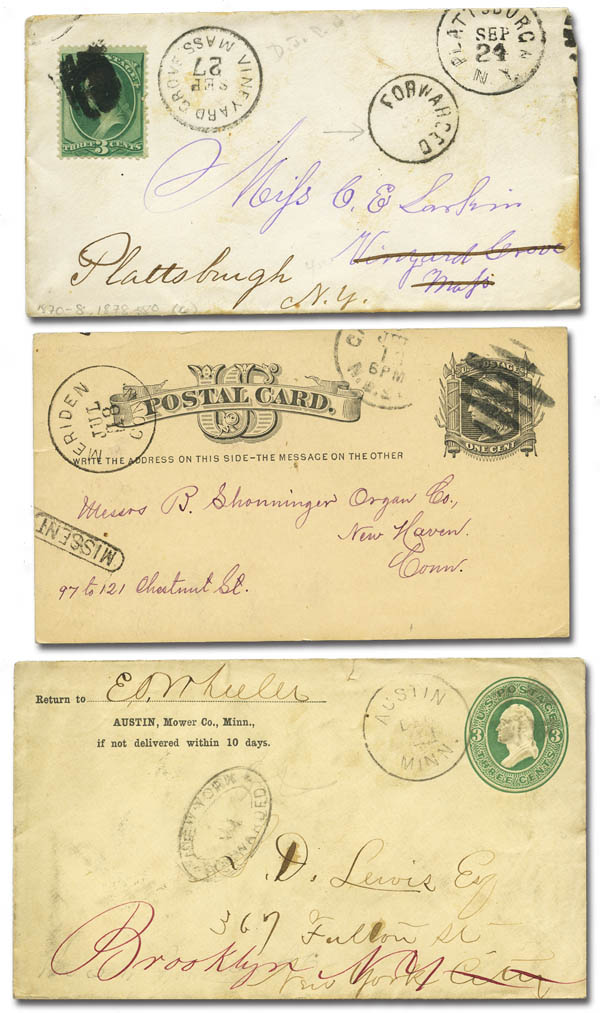 VINEYARD GROVE
MASS.
SEP
27
PLATTSBURGH
SEP
24
N.Y.
THREE 3 CENTS
FORWARCED
Miss C. E. Larkin
Vineyard Grove
Mass
Plattsburgh
N.Y.
1870-8, 1878-80
6 PM
U.S. POSTAGE
ONE CENT
US
POSTAL CARD.
WRITE THE ADDRESS ON THIS SIDE-THE MESSAGE ON THE OTHER
MERIDEN
JUL
18
Messrs B. Shonninger Organ Co.,
New Haven.
Conn.
MISSENT
97 to 121 Chestnut St.
Return to E. O. Wheeler
AUSTIN, Mower Co., Minn.,
if not delivered within 10 days.
AUSTIN
MINN.
U.S. POSTAGE
3 3
THREE CENTS
NEW YORK
FORWARDED
D. Lewis Esq
367 Fulton St
Brooklyn N Y
New York City